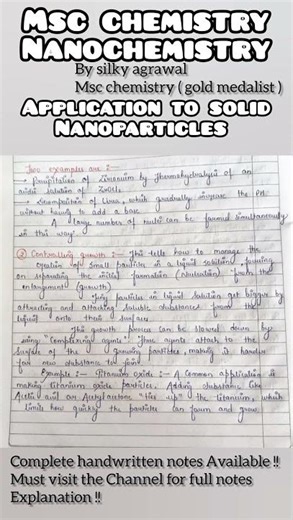 Msc chemistry
Nanochemistry
By silky agrawal
Msc chemistry ( gold medalist )
Application to solid
Nanoparticles
Two examples are :-
→ Precipitation of Zirconium by thermohydrolysis of an
acidic solution of ZrOCl2
→ Decomposition of Urea, which gradually increase the PH
without having to add a base.
A large number of nuclei can be formed simultaneously
in this way.
② Controlling growth :— This tells how to manage the
creation of small particles in a liquid solution, focusing
on separating the initial formation (nucleation) from the
enlargement (growth)
Tiny particles in liquid solution get bigger by
attracting and attaching soluble substances from the
liquid onto their surface.
This growth process can be slowed down by
using "Complexing agents". These agents attach to the
surface of the growing particles, making it harder
for new substance to join.
Example :— Titanium oxide :— A common application is
making titanium oxide particles. Adding substances like
Acetic acid or Acetylacetone "ties up" the titanium, which
limits how quickly the particles can form and grow.
Complete handwritten notes Available !!
Must visit the Channel for full notes
Explanation !!